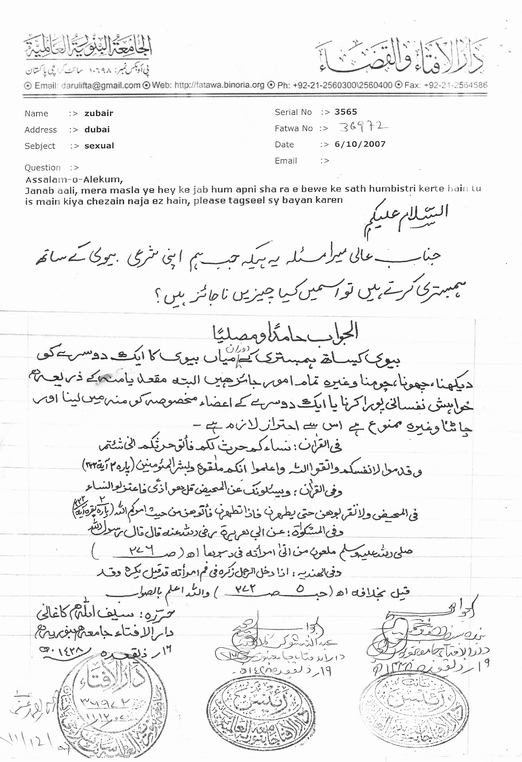 دار الافتاء والقضاء
الجامعة البنورية العالمية
پی او بکس نمبر: ۱۰۶۹۸ سائٹ کراچی پاکستان
Email: darulifta@gmail.com Web: http://fatawa.binoria.org Ph: +92-21-2560300\2560400 Fax: +92-21-2564586
Name :> zubair Serial No :> 3565
Address :> dubai Fatwa No :> 36972
Sebject :> sexual Date :> 6/10/2007
Email :>
Question :>
Assalam-o-Alekum,
Janab aali, mera masla ye hey ke jab hum apni sha ra e bewe ke sath humbistri kerte hain tu
is main kiya chezain naja ez hain, please tagseel sy bayan karen
السلام علیکم
جناب عالی میرا مسئلہ یہ ہیکہ جب ہم اپنی شرعی بیوی کے ساتھ
ہمبستری کرتے ہیں تو اسمیں کیا چیزیں ناجائز ہیں؟
الجواب حامدا ومصلیا
بیوی کیساتھ ہمبستری کے دوران میاں بیوی کا ایک دوسرے کو
دیکھنا، چھونا، چومنا وغیرہ تمام امور جائز ہیں البتہ مقعد یا منہ کے ذریعہ
خواہش نفسانی پورا کرنا یا ایک دوسرے کے اعضاء مخصوصہ کو منہ میں لینا اور
چاٹنا وغیرہ ممنوع ہے اس سے احتراز لازم ہے۔
فی القرآن: نساءکم حرث لکم فأتوا حرثکم انی شئتم
وقدموا لانفسکم واتقوا اللہ واعلموا انکم ملقوہ وبشر المؤمنین (پارہ ۲ آیۃ ۲۲۳)
وفی القرآن: ویسئلونک عن المحیض قل ھو اذی فاعتزلوا النساء
فی المحیض ولا تقربوھن حتی یطھرن فاذا تطھرن فأتوھن من حیث امرکم اللہ
وفی المشکوٰۃ: عن ابی ھریرۃ رضی اللہ عنہ قال قال رسول اللہ
صلی اللہ علیہ وسلم ملعون من اتی امرأتہ فی دبرھا اھ (صـ ۲۷۶)
وفی الھندیہ: اذا ادخل الرجل ذکرہ فی فم امرأتہ قد قیل یکرہ وقد
قیل بخلافہ اھ (جـ ۵ صـ ۳۷۲) واللہ اعلم بالصواب
حررہ: سیف اللہ
دار الافتاء جامعہ بنوریہ
۱۴۲۸ھ
دار الافتاء
رئیس
رئیس